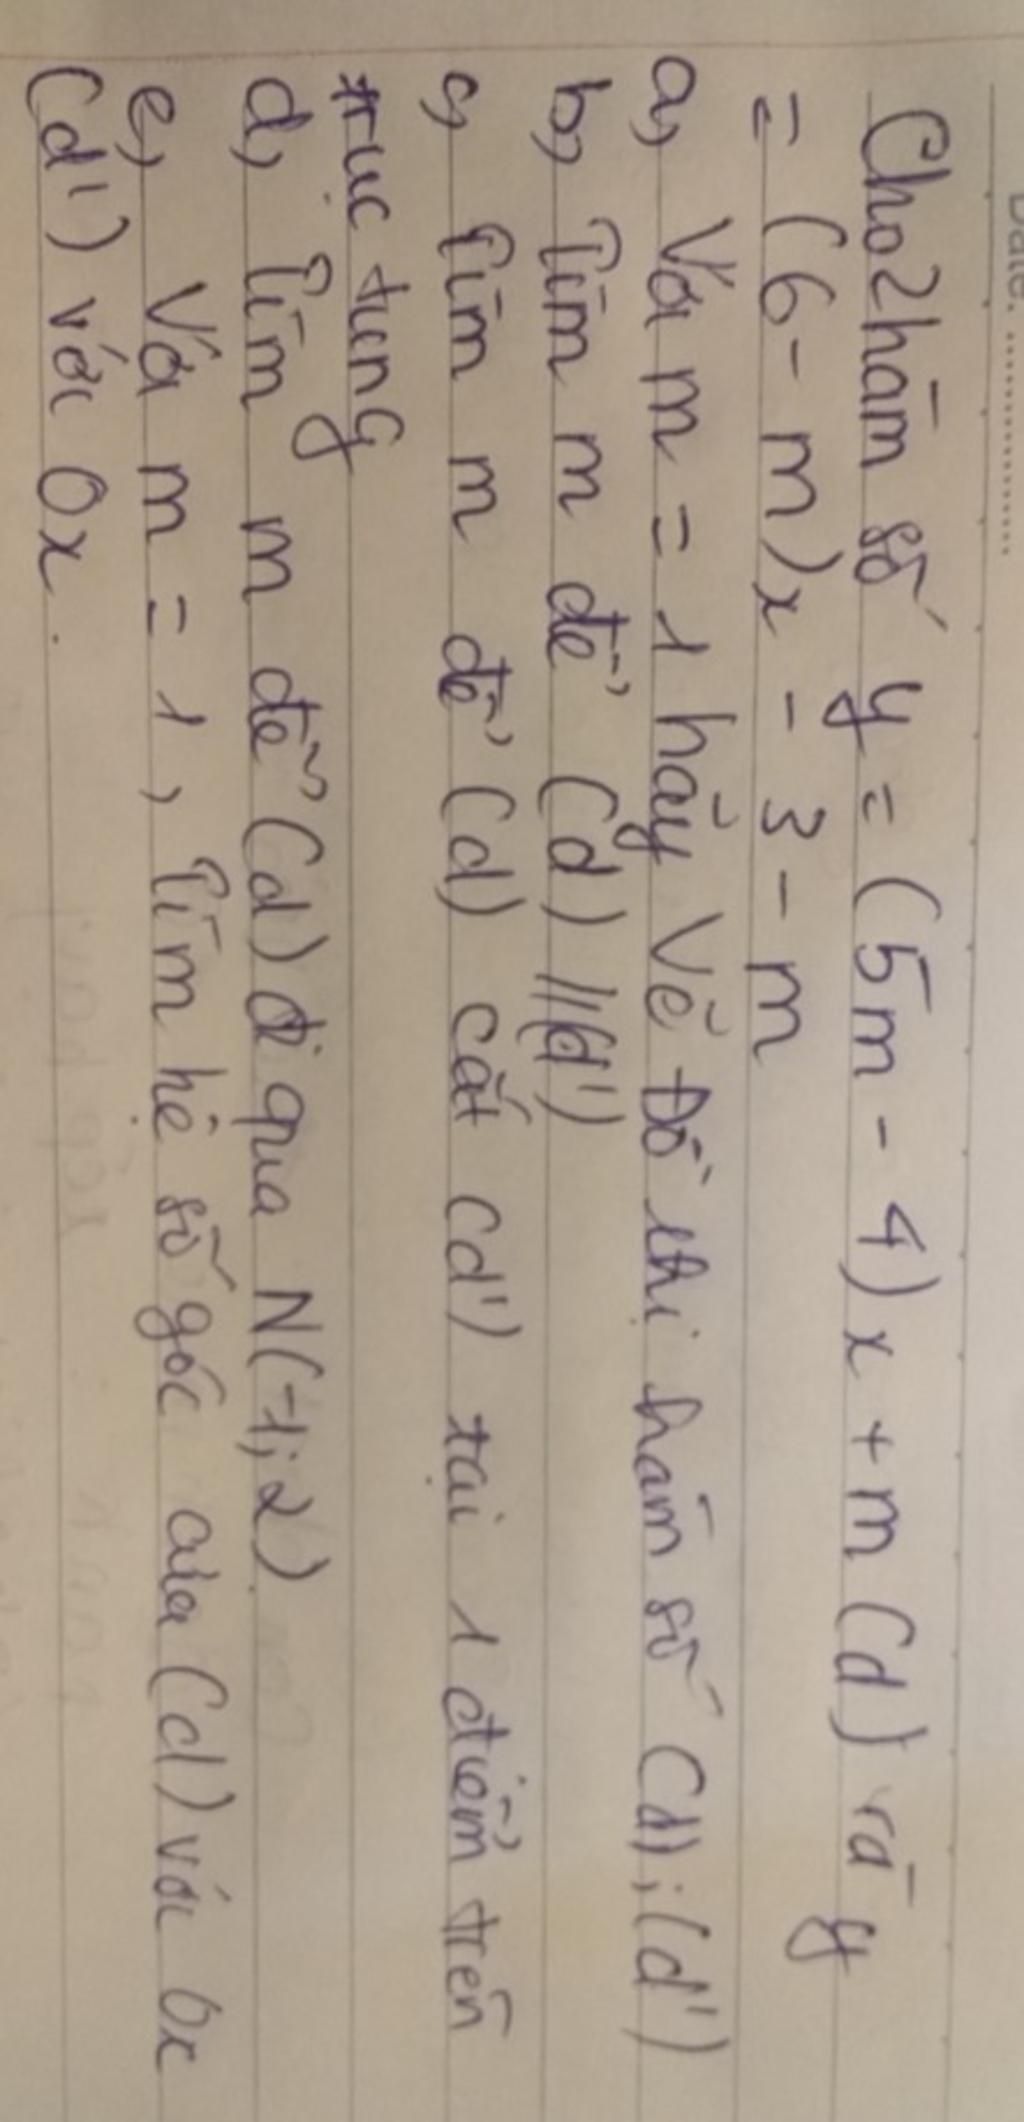 Date. ...............
Cho 2 hàm số y = (5m - 4)x + m (d) và y
= (6 - m)x - 3 - m
a, Với m = 1 hãy vẽ đồ thị hàm số (d); (d')
b, Tìm m để (d) // (d')
c, Tìm m để (d) cắt (d') tại 1 điểm trên
trục tung
d, Tìm m để (d) đi qua N(-1; 2)
e, Với m = 1, Tìm hệ số góc của (d) với Ox
(d') với Ox.